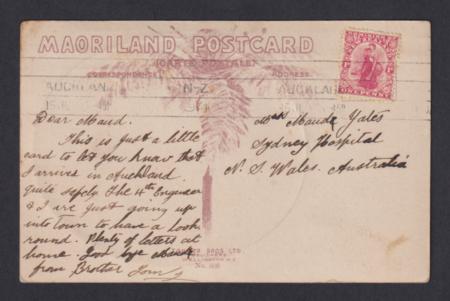 MAORILAND POSTCARD
(CARTE POSTALE)
CORRESPONDENCE
ADDRESS
AUCKLAN
N-Z
AUCKLAN
ONE PENNY
Dear Maud.
This is just a little
card to let you know that
I arrives in Auckland
quite safely The 4th Engineer
& I are just going up
into Town to have a look
round. Plenty of letters at
home. Good bye
from Brother Tom
Maude Yates
Sydney Hospital
N. S. Wales. Australia
BROS. LTD.
WELLINGTON N.Z.
No.